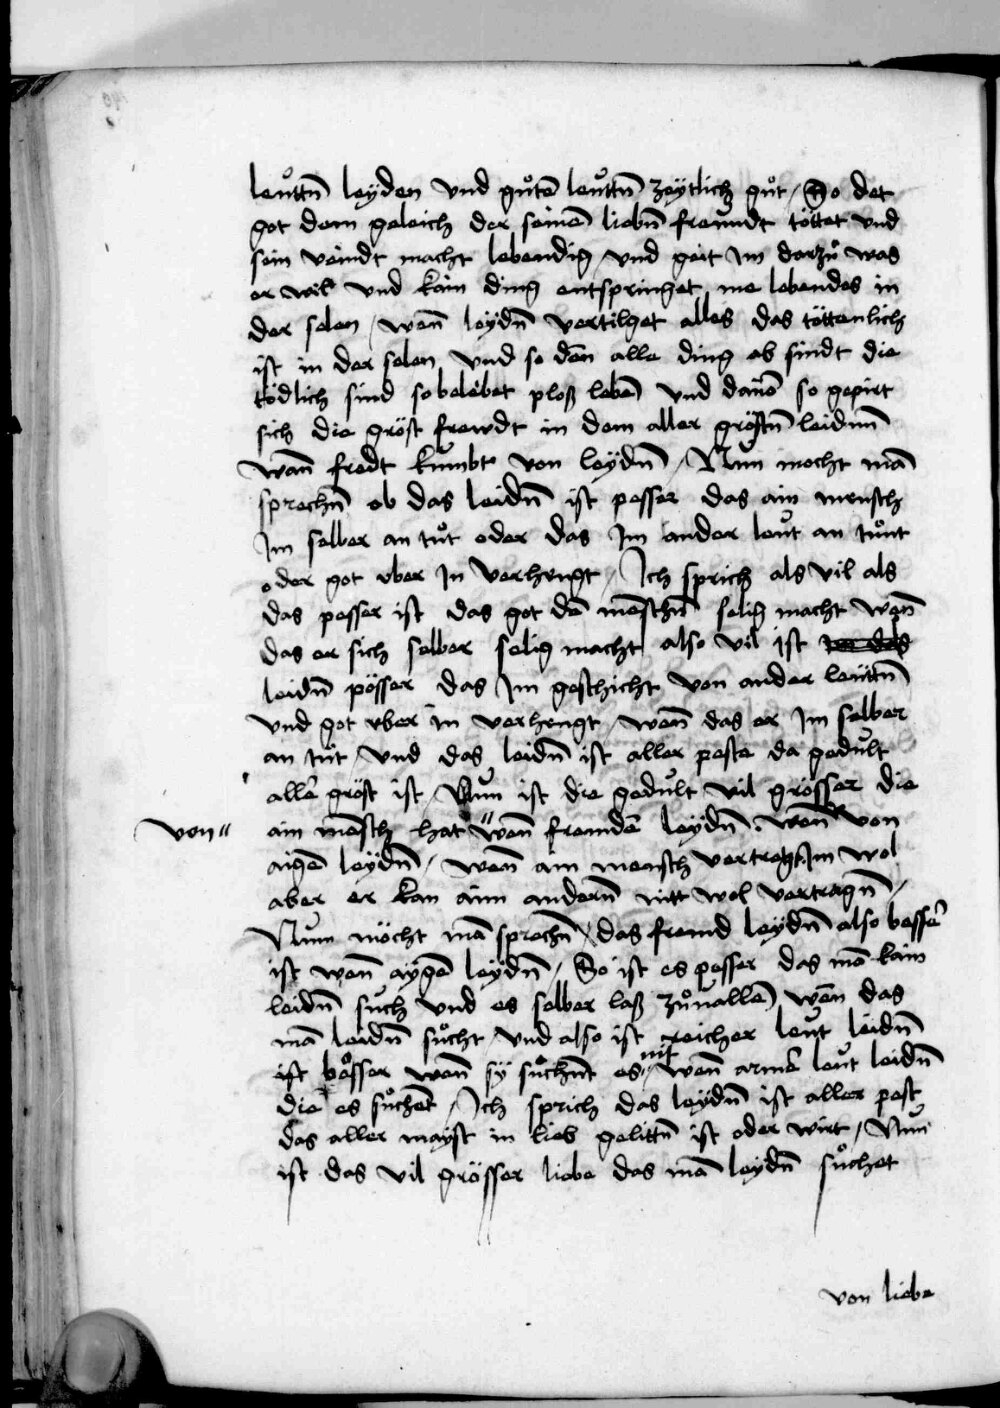 leuttn̄ leyden vnd gůtē leuttn̄ zeytlich gůt / So det
got dem geleich der seinē liebn̄ freundt töttet vnd
sein veindt macht lebendig vnd geit im darzů was
er wil vnd kain ding entspringet me lebendes in
der selen / wen̄ leydn̄ vertilget alles das töttenlich
ist in der selen vnd so den̄ alle ding ab sindt die
tödlich sind so belebet ploß lebē vnd dauō so gepirt
sich die gröst frewdt in dem aller gröstn̄ leidnn̄
wan̄ fredt kumbt von leydn̄ / Nun mocht mā
sprechn̄ ob das leidn̄ ist pesser das ain mensch
Jm selber an tůt oder das Jm ander leut an tůnt
oder got vber Jn verhengt / Jch sprich als vil als
das pesser ist das got dē menschn̄ selig macht wen̄
das er sich selber selig macht also vil ist
leidn̄ pösser das Jm geschicht von ander leuttn̄
vnd got vber in verhengt / wen̄ das er Jm selber
an tůt / Vnd das leidn̄ ist aller peste da gedult
aller gröst ist / Nun ist die gedult vil grösser die
von〃 ain mēsch hat〃wen̄ fremdē leydn̄. wen̄ von
aigē leydn̄ / wen̄ ain mensch vertregt Jm wol
aber er kan ainn andern̄ nitt wol vertragn̄ /
Nun möcht mā sprechn̄ / das fremd leydn̄ also besser
ist wen̄ aygē leydn̄ / So ist es pesser das mā kain
leidn̄ such vnd es selber laß zůuallē wen̄ das
mā leidn̄ sůcht / vnd also ist reicher leut leidn̄
ist bösser wen̄ sy sůchnt es nit wen̄ armē leut leidn̄
die es sůchēt / Jch sprich das leydn̄ ist aller pest
das aller mayst in lieb gelittn̄ ist oder wirt / Nun
ist das vil grösser liebe das mā leydn̄ sůchet
von liebe